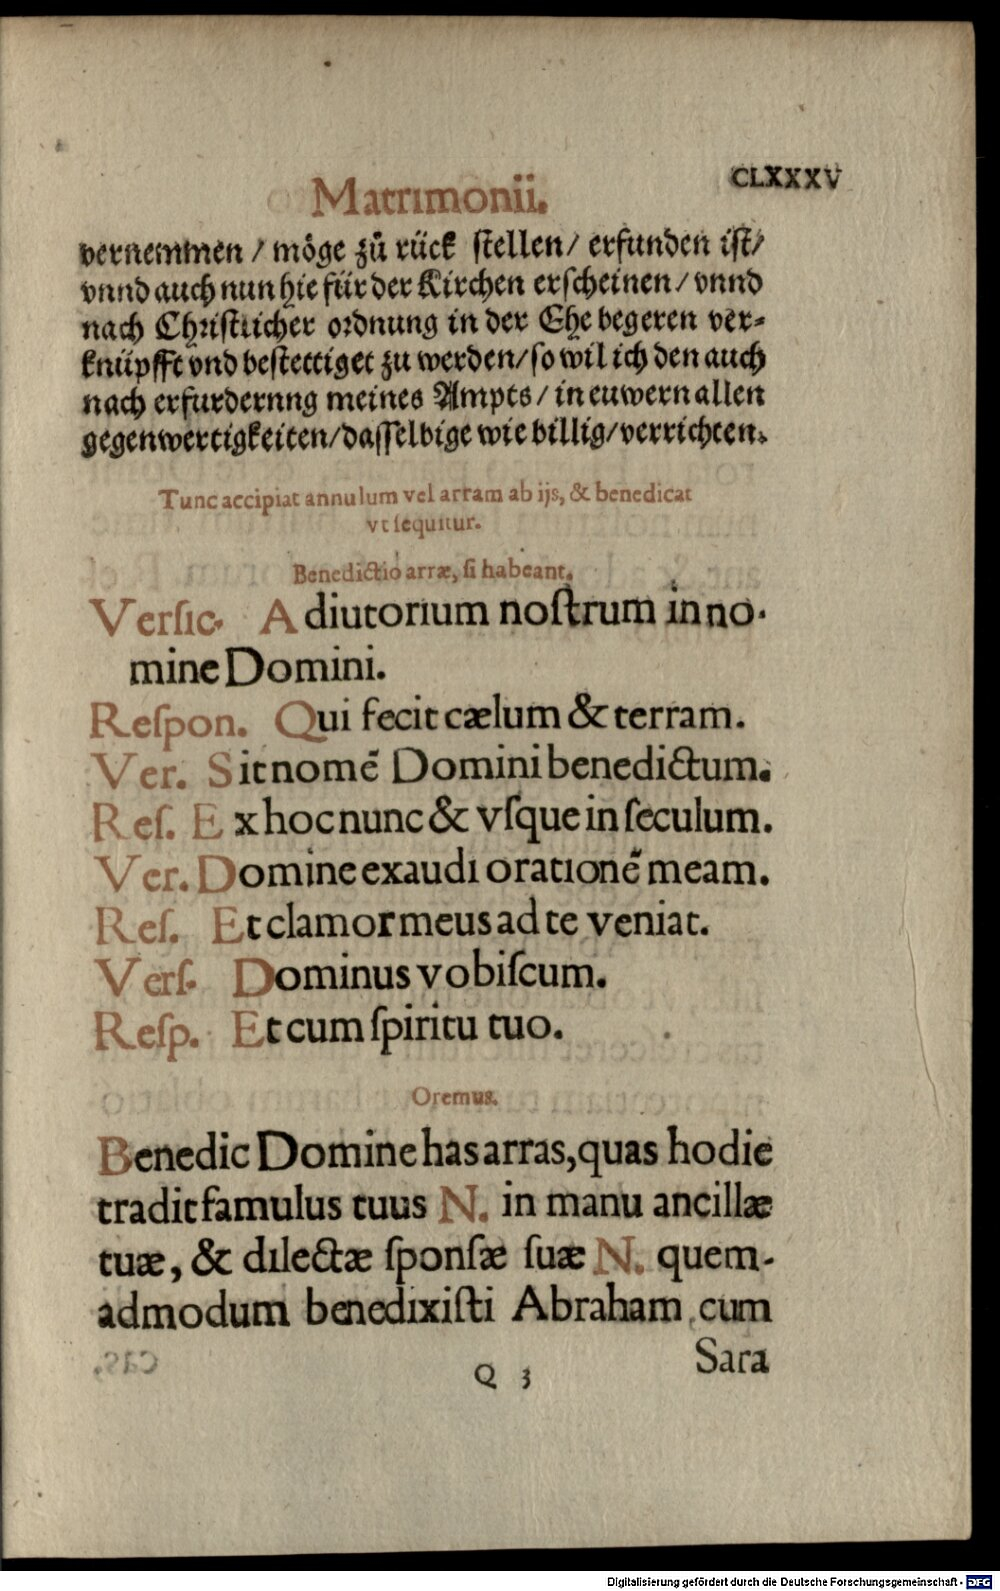 Matrimonii. CLXXXV
vernemmen / möge zů rück stellen / erfunden ist /
vnnd auch nun hie für der Kirchen erscheinen / vnnd
nach Christlicher ordnung in der Ehe begeren ver-
knüpfft vnd bestettiget zu werden / so wil ich den auch
nach erfurdernng meines Ampts / in euwern allen
gegenwertigkeiten / dasselbige wie billig / verrichten.
Tunc accipiat annulum vel arram ab ijs, & benedicat
vt sequitur.
Benedictio arræ, si habeant.
Versic. Adiutorium nostrum in no-
mine Domini.
Respon. Qui fecit cælum & terram.
Ver. Sit nomẽ Domini benedictum.
Res. Ex hoc nunc & vsque in seculum.
Ver. Domine exaudi orationẽ meam.
Res. Et clamor meus ad te veniat.
Vers. Dominus vobiscum.
Resp. Et cum spiritu tuo.
Oremus.
Benedic Domine has arras, quas hodie
tradit famulus tuus N. in manu ancillæ
tuæ, & dilectæ sponsæ suæ N. quem-
admodum benedixisti Abraham cum
Sara
Q 3
Digitalisierung gefördert durch die Deutsche Forschungsgemeinschaft - DFG